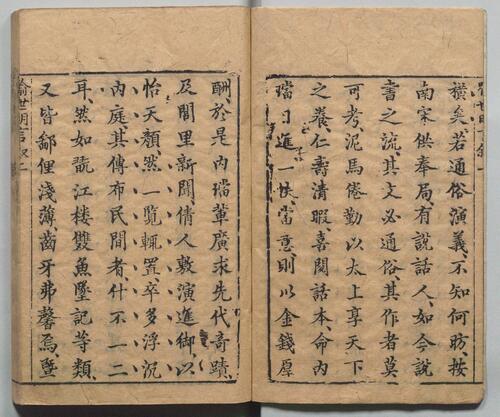 橫矣、若通俗演義、不知何昉、按
南宋供奉局、有說話人、如今說
書之流、其文必通俗、其作者莫
可考、泥馬倦勤、以太上享天下
之養、仁壽清暇、喜閱話本、命內
璫日進一帙、當意、則以金錢厚
酬、於是內璫輩廣求先代奇蹟、
及閭里新聞、倩人敷演進御、以
怡天顏、然一覽輒置、卒多浮沉
內庭、其傳布民間者、什不一二
耳、然如翫江樓雙魚墜記等類、
又皆鄙俚淺薄、齒牙弗馨焉、暨
喻世明言 敘二